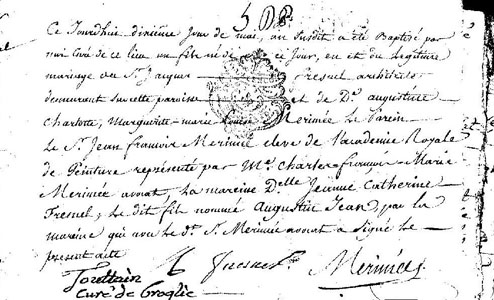 Ce Jourdhui dixième Jour de mai, au susdit a été Baptisé par
nous Curé de ce lieu un fils né de ce Jour, en et du légitime
mariage du Sr. Jacques Fresnel architecte
demeurant sur cette paroisse et de De. augustine
Charlotte, Marguerite-marie Louise Merimée Le Parein
Le Sr. Jean francois Merimée eleve de l'academie Royale
de Peinture représenté par Me. Charles francois-Marie
Merimée avocat, La mareine Delle Jeanne Catherine
Fresnel, Le dit fils nommé Augustin Jean, par la
mareine qui avec le dt. Sr. Merimée avocat a Signé Le
present acte
Fresnel. Merimée
Toullain
Curé de Broglie